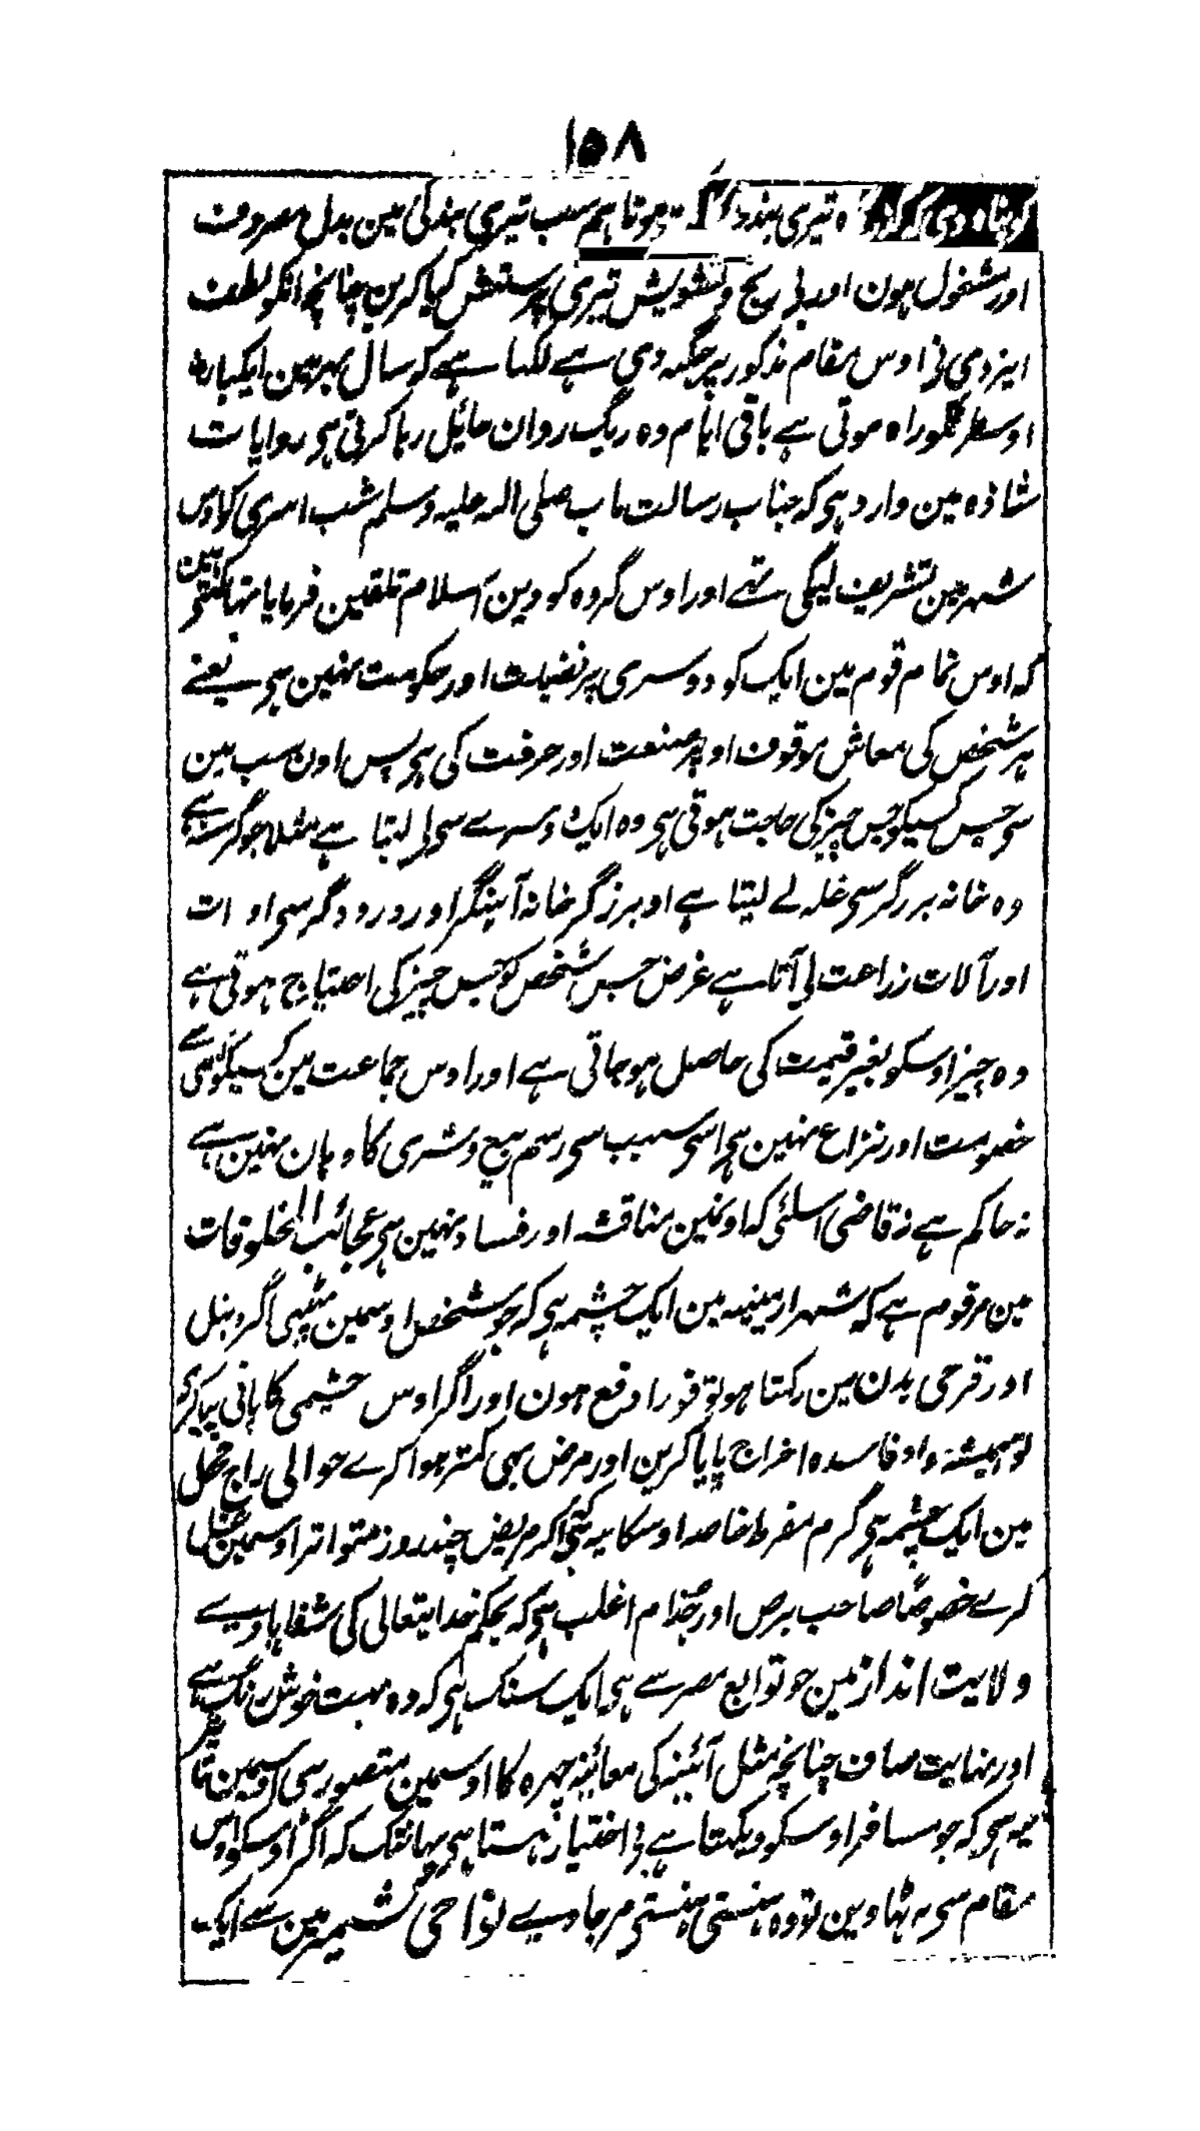 ۱۵۸
کو پناہ دی تیری بند ہوتا ہم سب تیری بندگی مین بدل مصروف
اور مشغول ہون اور بی رنج و تشویش تیری پرستش کیا کرین چنانچہ انکو لطف
ایزدی نی اوس مقام مذکور پر جگہ دی ہے لکہا ہے کو سال بہر مین ایکبارہ
اوسطرفکو راہ ہوتی ہے باقی ایام وہ ریگ روان حائیل رہا کرتی ہی روایات
شاذہ مین وارد ہی کہ جناب رسالت ماب صلی اللہ علیہ وسلم شب اسری کو اوس
شہر مین تشریف لیگی تہے اور اوس گروہ کو دین اسلام تلقین فرمایا تہا کہتی ہین
کہ اوس تمام قوم مین ایک کو دوسری پر فضیلت اور حکومت نہین ہی یعنے
ہر شخص کی معاش موقوف اوپر صنعت اور حرفت کی ہی پس اون سب مین
سی جس کسیکو جس چیز کی حاجت ہوتی ہی وہ ایک دوسرے سی لے لیتا ہے مثلا جو گرسنہ ہے
وہ خانہ برزگر سی غلہ لے لیتا ہے اور برزگر خانہ آہنگر اور درودگر سی اوات
اور آلات زراعت لی آتا ہے غرض جس شخص کو جس چیز کی احتیاج ہوتی ہے
وہ چیز اوسکو بغیر قیمت کی حاصل ہو جاتی ہے اور اوس جماعت مین کسیکو کسی سے
خصومت اور نزاع نہین ہی اسی سبب سی رسم بیع و شری کا وہان نہین ہے
نہ حاکم ہے نہ قاضی اسلئی کہ اونمین مناقشہ اور فساد نہین ہی عجائب المخلوقات
مین مرقوم ہے کہ شہر ارمینیہ مین ایک چشمہ ہی کہ جو شخص اوسمین بیٹہی اگر دنبل
اور قرحی بدن مین رکہتا ہو تو فورا دفع ہون اور اگر اوس چشمی کا پانی پیا کری
تو ہمیشہ مواد فاسدہ اخراج پایا کرین اور مرض بہی کمتر ہوا کرے حوالی راج محل
مین ایک چشمہ ہی گرم مفرط خاصہ اوسکا یہ ہی اگر مریض چند روز متواتر اوسمین غسل
کرے خصوصًا صاحب برص اور جذام اغلب ہی کہ بحکم خدایتعالی کی شفا پاوے
ولایت انداز مین جو توابع مصر سے ہی ایک سنک ہی کہ وہ بہت خوش رنگ ہے
اور نہایت صاف چنانچہ مثل آئینہ کی معائینہ چہرہ کا اوسمین متصور ہی اوسمین تاثیر
یہ ہی کہ جو مسافر اوسکو دیکہتا ہے بی اختیار ہنستا ہی یہانتک کہ اگر اوسکو اوس
مقام سی نہ ہٹاوین تو وہ ہنستی ہنستی مر جاوے نواحی کشمیر مین سے ایک